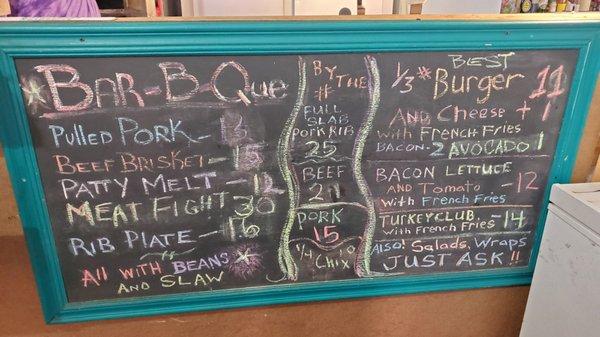 Bar-B-Que
Pulled Pork - 13
Beef Brisket - 15
Patty Melt - 12
Meat Fight 30
Rib Plate - 16
All with Beans
and Slaw
By The
#
Full
Slab
Pork Rib
25
Beef
21
Pork
15
1/4 Chix 10
Best
1/3 # Burger 11
and Cheese + 1
with French Fries
Bacon - 2 Avocado 1
Bacon Lettuce
and Tomato - 12
with French Fries
Turkey Club - 14
with French Fries
Also! Salads, Wraps
Just Ask!!